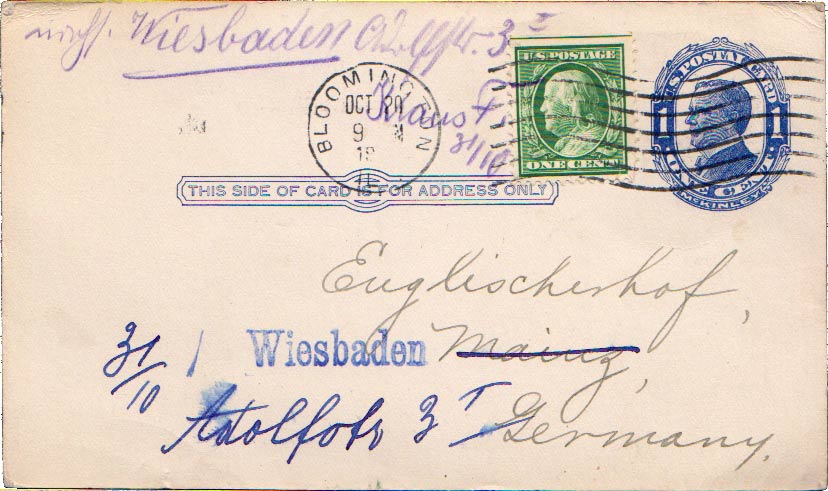 nicht. Wiesbaden Adolfstr. 3 I
BLOOMINGTON
OCT 20
9 M
31/10
U.S. POSTAGE
ONE CENT
U.S. POSTAL CARD
1 1
ONE CENT
McKINLEY
THIS SIDE OF CARD IS FOR ADDRESS ONLY
Englischerhof,
31/10 / Wiesbaden Mainz,
Adolfstr 3 I Germany.